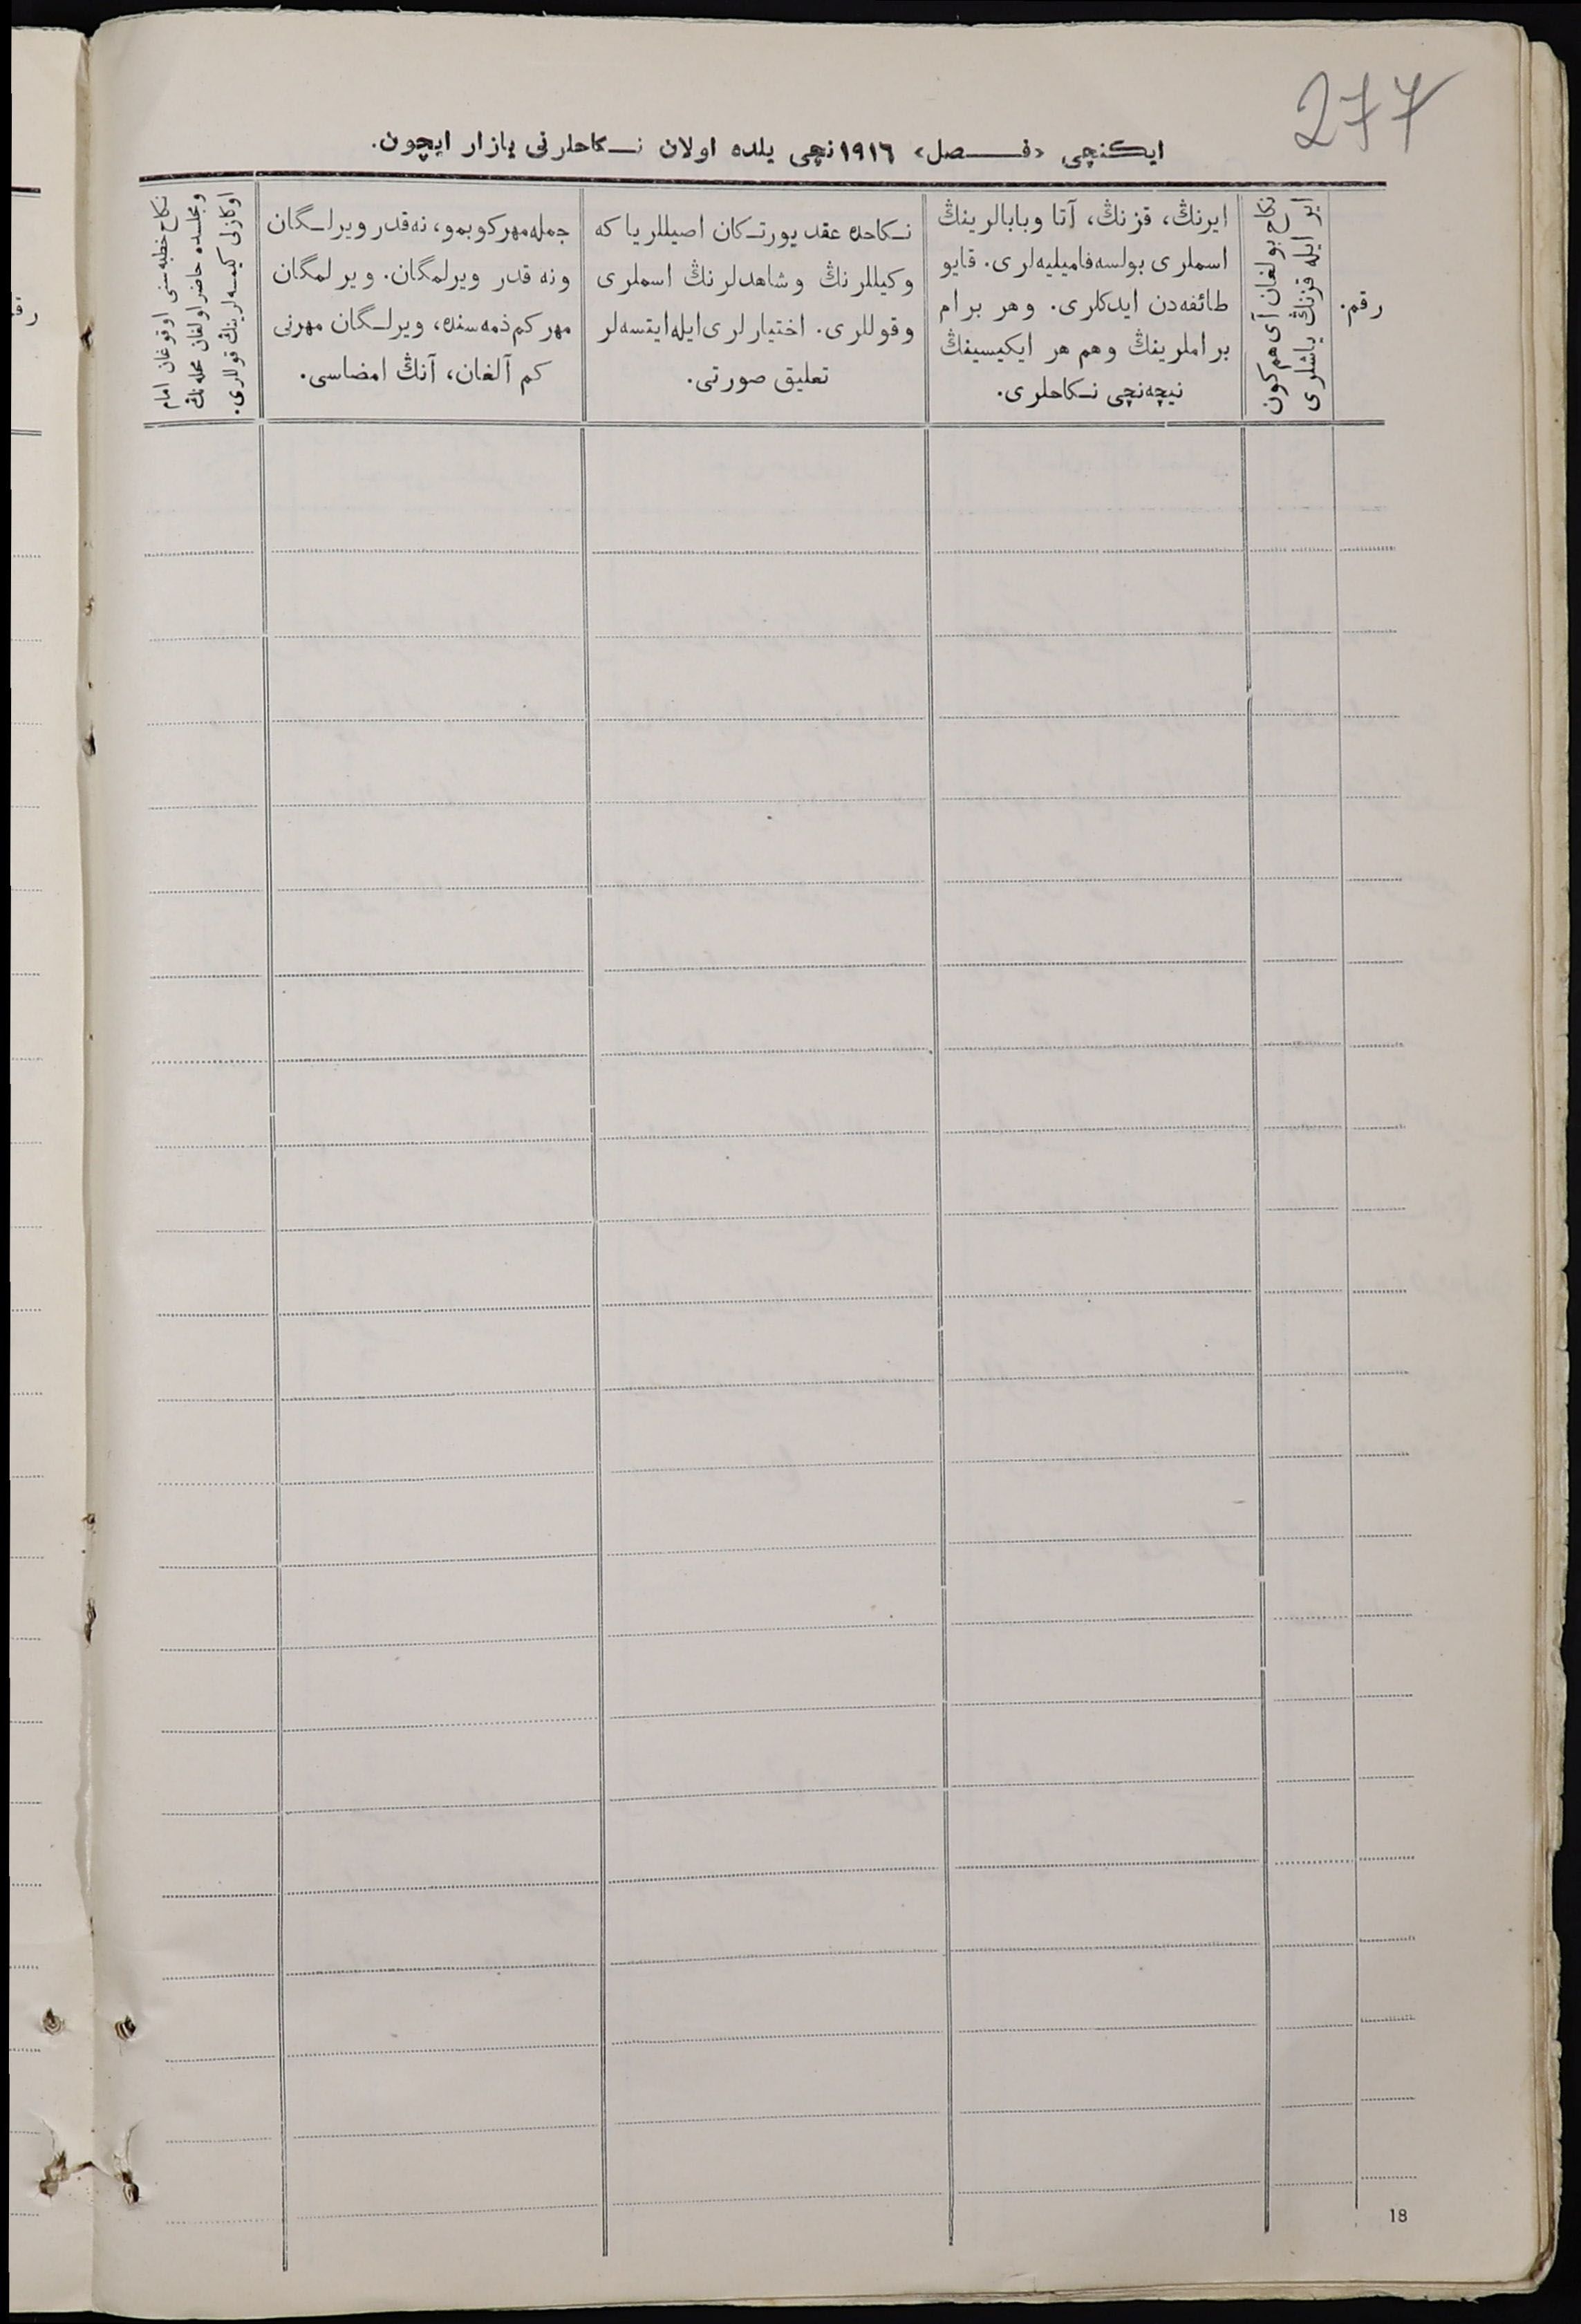 277
ایكنچی «فـصل» ١٩١٦نچی یلده اولان نـكاحلرنی یازار ایچون.
رقم.
نكاح بولغان آی هم كون
ایر ایله قزنڭ یاشلری
ایرنڭ، قزنڭ، آتا وبابالرینڭ
اسملری بولسه فامیلیه‌لری. قایو
طائفه‌دن ایدكلری. وهر برام
براملرینڭ وهم هر ایكیسینڭ
نیچه‌نچی نـكاحلری.
نـكاحده عقد یورتـكان اصیللر یا كه
وكیللرنڭ وشاهدلرنڭ اسملری
وقوللری. اختیارلری ایله ایتسه‌لر
تعلیق صورتی.
جمله مهر كوبمو، نه‌قدر ویرلـگان
ونه قدر ویرلمگان. ویرلمگان
مهر كم ذمه‌سنده، ویرلـگان مهرنی
كم آلغان، آنڭ امضاسی.
نكاح خطبه‌سنی اوقوغان امام
ومجلسده حاضر اولغان محله‌نڭ
اوكازلی كیمسه‌لرینڭ قوللری.
رق
18